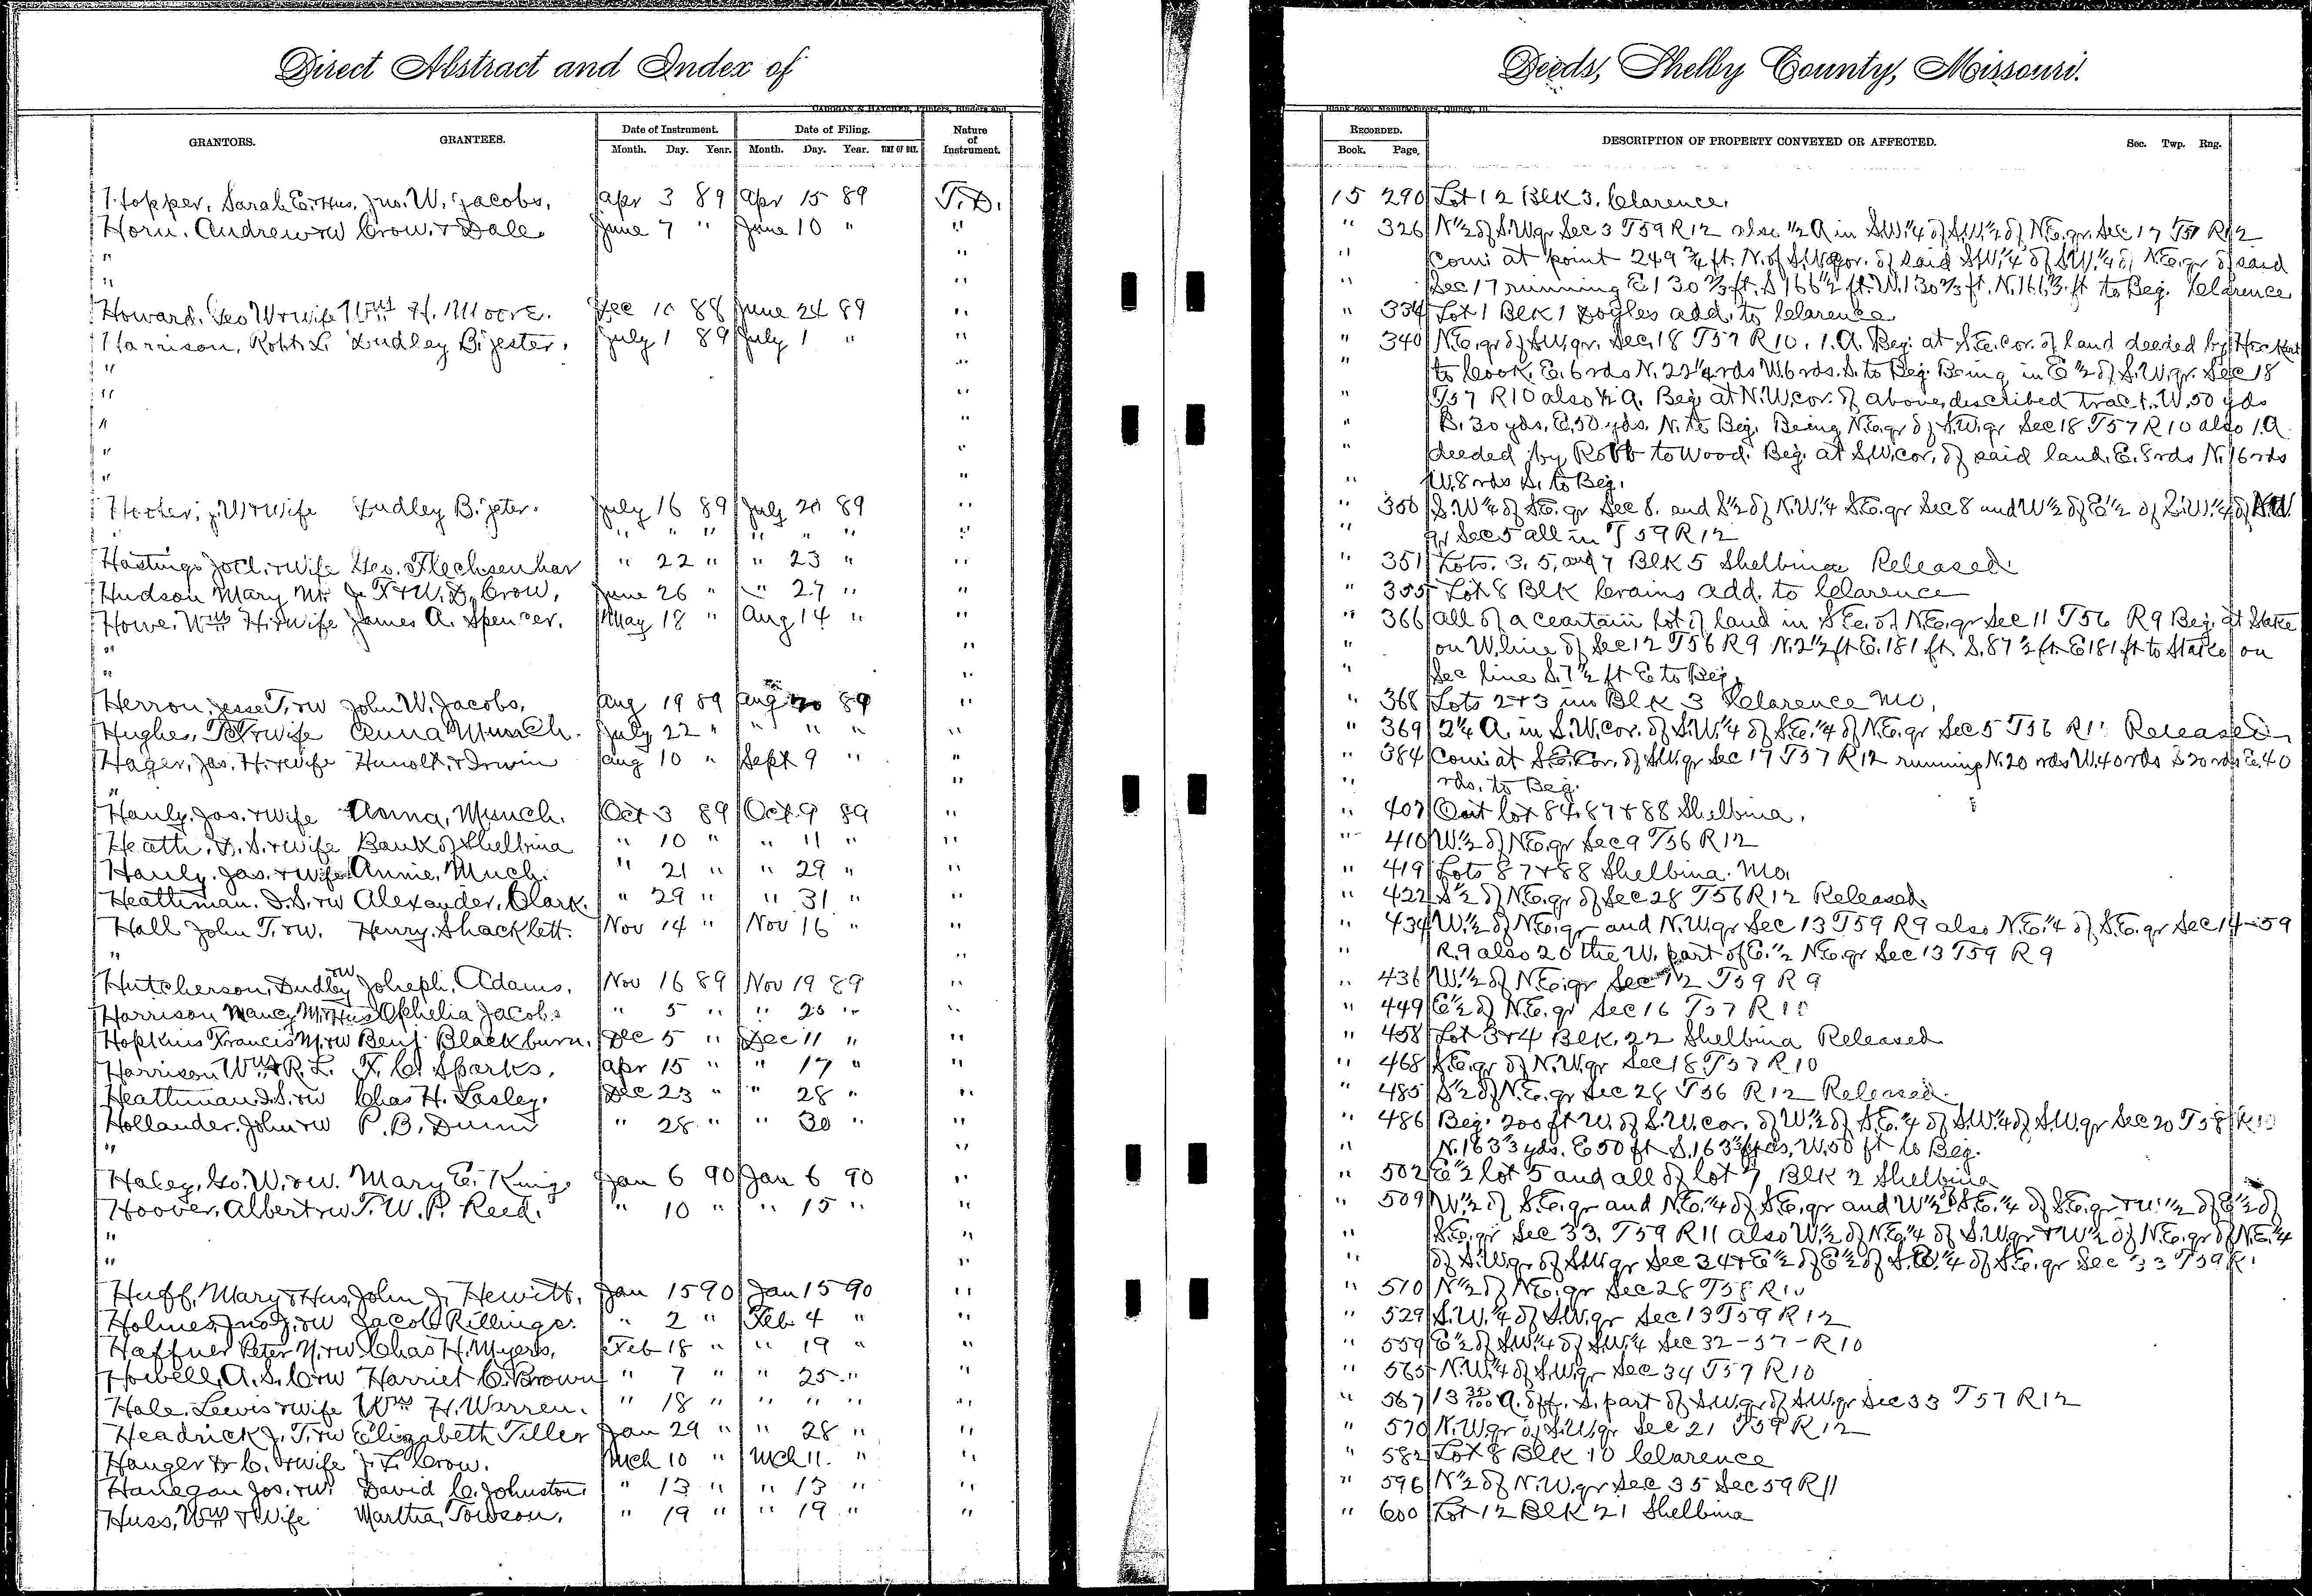 Direct Abstract and Index of Deeds, Shelby County, Missouri.
CADOGAN & HATCHER, Printers, Binders and Blank Book Manufacturers, Quincy, Ill.
GRANTORS. GRANTEES. Date of Instrument. Date of Filing. Nature of Instrument. RECORDED. DESCRIPTION OF PROPERTY CONVEYED OR AFFECTED. Sec. Twp. Rng.
Month. Day. Year. Month. Day. Year. TIME OF DAY. Book. Page.
Hopper, Sarah E. + Hus. Jno. W. Jacobs. Apr 3 89 Apr 15 89 T.D. 15 290 Lot 12 Blk 3. Clarence.
Horn. Andrew + w Crow. + Dale June 7 " June 10 " " " 326 N 1/2 of S.W. qr Sec 3 T59 R12 also 1/2 A in S.W. 1/4 of S.W. 1/2 of N.E. qr. Sec 17 T57 R12
" " " Com: at point 249 3/4 ft. N. of S.W. cor. of said S.W. 1/4 of S.W. 1/4 of N.E. qr of said
" " " Sec 17 running E 130 2/3 ft. S 166 1/2 ft. W. 130 2/3 ft. N. 166 3 ft to Beg. Clarence
Howard. Geo W + wife Wm H. Moore. Dec 10 88 June 24 89 " " 334 Lot 1 Blk 1 Doyles add. to Clarence
Harrison, Robt. L. Dudley Bigester. July 1 89 July 1 " " " 340 N.E. qr of S.W. qr. Sec. 18 T57 R10. 1. A. Beg. at S.E. cor. of land deeded by
" " " to Cook. E. 6 rds N. 22 1/4 rds W. 6 rds. S. to Beg. Being in E 1/2 of S.W. qr. Sec 18
" " " T57 R10 also 1/2 A. Beg. at N.W. cor. of above, described tract. W. 50 yds
" " " S. 30 yds. E. 50 yds. N. to Beg. Being N.E. qr of S.W. qr Sec 18 T57 R10 also 1. A.
" " " deeded by Robb to Wood. Beg. at S.W. cor. of said land. E. 8 rds N. 16 rds
" " " W. 8 rds S. to Beg.
J. W + wife Dudley Bigester. July 16 89 July 20 89 " " 350 S.W 1/4 of S.E. qr Sec 8. and S 1/2 of N.W. 1/4 S.E. qr Sec 8 and W 1/2 of E 1/2 of S.W. 1/4 of N.W.
" " " " " " " " qr Sec 5 all in T59 R12
Hastings Jo Cl. + wife Geo. Flechsenhar " 22 " " 23 " " " 351 Lots. 3. 5, and 7 Blk 5 Shelbina Released.
Hudson Mary M. J. F + W. D. Crow. June 26 " " 27 " " " 355 Lot 8 Blk Crains add. to Clarence
Howe. Wm H. + wife James A. Spencer. May 18 " Aug 14 " " " 366 all of a ceartain lot of land in S.E. of N.E. qr Sec 11 T56 R9 Beg. at Stake
" " " on W. line of Sec 12 T56 R9 N. 2 1/2 ft E. 181 ft. S. 87 1/2 ft. E 181 ft to Stake on
" " " Sec line S. 7 1/2 ft E to Beg.
Herron. Jesse T. + w John W. Jacobs. Aug 19 89 Aug 20 89 " " 368 Lots 2 + 3 in Blk 3 Clarence Mo.
Hughes, + wife Anna Munch. July 22 " " " " " " 369 2 1/4 A. in S.W. cor. of S.W. 1/4 of S.E. 1/4 of N.E. qr Sec 5 T56 Released
Hager, Jas. H. + wife Hunolt. + Irwin Aug 10 " Sept 9 " " " 384 Com: at S.E. Cor. of S.W. qr Sec 17 T57 R12 running N. 20 rds W. 40 rds S 20 rds E. 40
" " " rds. to Beg.
Hanly. Jas. + wife Anna, Munch. Oct 3 89 Oct. 9 89 " " 407 Out lot 84. 87 + 88 Shelbina.
Heath. D. S. + wife Bank of Shelbina " 10 " " 11 " " " 410 W. 1/2 of N.E. qr Sec 9 T56 R12
Hanly. Jas. + wife Annie. Much. " 21 " " 29 " " " 419 Lots 87 + 88 Shelbina. Mo.
Heathman. I. S. + w Alexander. Clark. " 29 " " 31 " " " 422 S 1/2 of N.E. qr of Sec 28 T56 R12 Released.
Hall John T. + w. Henry. Shacklett. Nov 14 " Nov 16 " " " 434 W. 1/2 of N.E. qr and N.W. qr Sec 13 T59 R9 also N.E. 1/4 of S.E. qr Sec 14 - 59
" " " R. 9 also 20 the W. part of E. 1/2 N.E. qr Sec 13 T59 R9
Hutcherson, Dudley + w Joheph. Adams. Nov 16 89 Nov 19 89 " " 436 W. 1/2 of N.E. qr Sec 12 T59 R9
Harrison Nancy M. + Hus Ophelia Jacobs " 5 " " 20 " " " 449 E 1/2 of N.E. qr Sec 16 T57 R10
Hopkins Francis M. + w Benj. Blackburn. Dec 5 " Dec 11 " " " 458 Lot 3 + 4 Blk. 22 Shelbina Released
Harrison Wm + R. L. F. C. Sparks. Apr 15 " " 17 " " " 468 S.E. qr of N.W. qr Sec 18 T57 R10
Heathman I. S. + w Chas H. Lasley. Dec 23 " " 28 " " " 485 S 1/2 of N.E. qr Sec 28 T56 R12 Released
Hollander. John + w P. B. Dunn " 28 " " 30 " " " 486 Beg. 200 ft W. of S.W. cor. of W. 1/2 of S.E. 1/4 of S.W. 1/4 of S.W. qr Sec 20 T58 R10
" " " N. 163 3 yds. E 50 ft S. 163 yds, W. 50 ft to Beg.
Haley, Go. W. + w. Mary E. King. Jan 6 90 Jan 6 90 " " 502 E 1/2 lot 5 and all of lot 7 Blk 2 Shelbina
Hoover, Albert + w T. W. P. Reed. " 10 " " 15 " " " 509 W. 1/2 of S.E. qr and N.E. 1/4 of S.E. qr and W 1/2 of S.E. 1/4 of S.E. qr + W 1/2 of E 1/2 of
" " " S.E. qr Sec 33. T59 R11 also W. 1/2 of N.E. 1/4 of S.W. qr + W 1/2 of N.E. qr of N.E. 1/4
" " " of S.W. qr of S.W. qr Sec 34 + E 1/2 of E 1/2 of S.W. 1/4 of S.E. qr Sec 33 T59 R.
Huff, Mary + Hus, John J. Hewitt. Jan 15 90 Jan 15 90 " " 510 N 1/2 of N.E. qr Sec 28 T58 R10
Holmes, Jno J. + w Jacob Rillinger. " 2 " Feb. 4 " " " 529 S.W. 1/4 of S.W. qr Sec 13 T59 R12
Haffner Peter N. + w Chas H. Myers. Feb 18 " " 19 " " " 559 E 1/2 of S.W. 1/4 of S.W. 1/4 Sec 32 - 57 - R10
Howell, A. S. C + w Harriet C. Brown " 7 " " 25 " " " 565 N.W. 1/4 of S.W. qr Sec 34 T57 R10
Hale, Lewis + wife Wm H. Warren. " 18 " " " " " " 567 13 35/100 A. off. S. part of S.W. qr of S.W. qr Sec 33 T57 R12
Headrick J. T. + w Elizabeth Tiller Jan 29 " " 28 " " " 570 N.W. qr of S.W. qr Sec 21 T59 R12
Hanger Dr C. + wife J. F. Crow. Mch 10 " Mch 11. " " " 582 Lot 8 Blk 10 Clarence
Hanegan Jos. + w. David C. Johnston " 13 " " 13 " " " 596 N 1/2 of N.W. qr Sec 35 Sec 59 R11
Huss, Wm + Wife Martha, Towson. " 19 " " 19 " " " 600 Lot 12 Blk 21 Shelbina